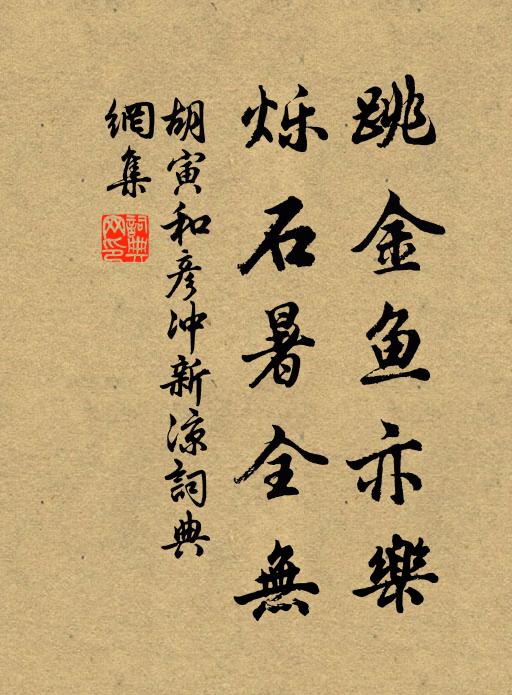 跳金鱼亦樂
烁石暑全無
胡寅和彦冲新凉詞典
網集
詞典
网印